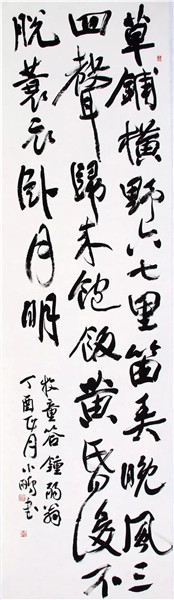 草鋪橫野六七里笛弄晚風三
四聲歸来飽飯黄昏後不
脱蓑衣卧月明
牧童答鍾弱翁
丁酉正月小鵬書